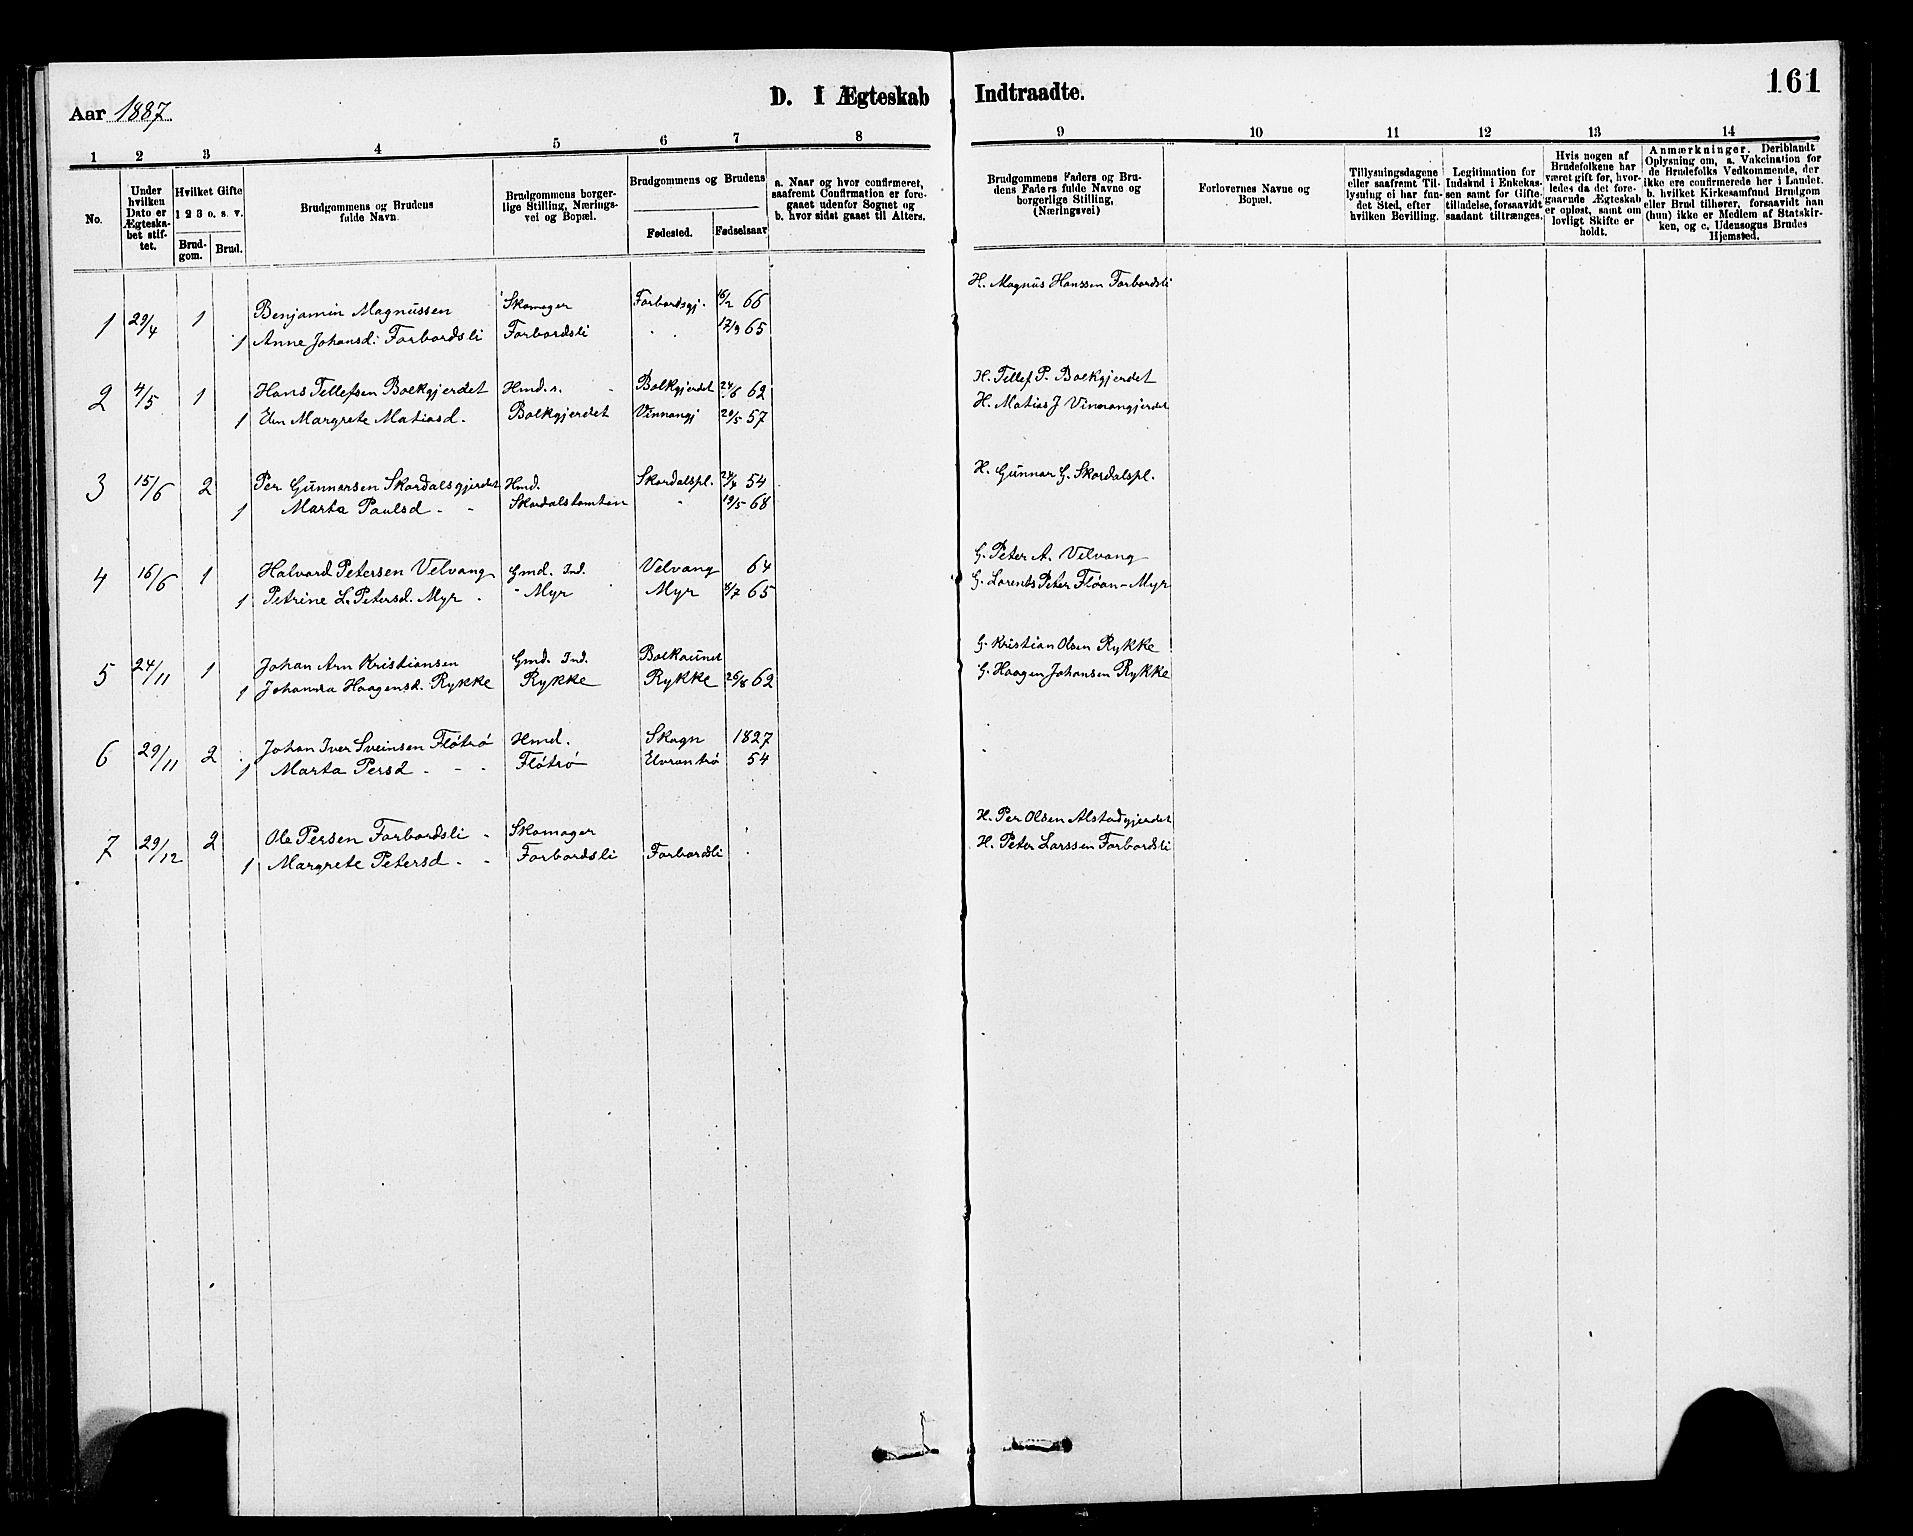 Aar 1887.
D. I Ægteskab Indtraadte.
161
1 2 3 4 5 6 7 8 9 10 11 12 13 14
No.
Under hvilken Dato er Ægteska- bet stif- tet.
Hvilket Gifte 1 2 3 o. s. v.
Brud- gom.
Brud.
Brudgommens og Brudens fulde Navn.
Brudgommens borger- lige Stilling, Nærings- vei og Bopæl.
Brudgommens og Brudens
Fødested.
Fødselsaar
a. Naar og hvor confirmeret, saafremt Confirmation er fore- gaaet udenfor Sognet og b. hvor sidst gaaet til Alters.
Brudgommens Faders og Bru- dens Faders fulde Navne og borgerlige Stilling, (Næringsvei)
Forlovernes Navne og Bopæl.
Tillysningsdagene eller saafremt Til- lysning ei har fun- det Sted, efter hvilken Bevilling.
Legitimation for Indskud i Enkekas- sen samt for Gifte- tilladelse, forsaavidt saadant tiltrænges.
Hvis nogen af Brudefolkene har været gift før, hvor- ledes da det fore- gaaende Ægteskab er opløst, samt om lovligt Skifte er holdt.
Anmærkninger. Deriblandt Oplysning om, a. Vakcination for de Brudefolks Vedkommende, der ikke ere confirmerede her i Landet. b. hvilket Kirkesamfund Brudgom eller Brud tilhører, forsaavidt han (hun) ikke er Medlem af Statskir- ken, og c. Udensogns Brudes Hjemsted.
1 29/4 1 Benjamin Magnussen Skomager Forbordsgj. 16/2 66 H. Magnus Hanssen Forbordsli
1 Anne Johansd. Forbordsli Forbordsli " 17/9 65
2 4/5 1 Hans Tellefsen Bolkgjerdet Hmd. s. Bolkgjerdet 24/6 62 H. Tellef P. Bolkgjerdet
1 Elen Margrete Matiasd. Bolkgjerdet Vinnangj 29/5 57 H. Matias J Vinnangjerdet
3 15/6 2 Per Gunnarsen Skordalsgjerdet Hmd. Skordalspl. 54 H. Gunnar G. Skordalspl.
1 Marta Paulsd - - Skordalstomten " 19/5 68
4 16/6 1 Halvard Petersen Velvang Gmd. Ind. Velvang 64 G. Peter A. Velvang
1 Petrine L. Petersd. Myr - " Myr Myr 8/7 65 G. Lorents Peter Fløan-Myr
5 24/11 1 Johan Arn Kristiansen Gmd. Ind. Bolkaunet G. Kristian Olsen Rykke
1 Johanna Haagensd. Rykke Rykke Rykke 26/8 62 G. Haagen Johansen Rykke
6 29/11 2 Johan Iver Sveinsen Fløtrø Hmd. Skogn 1827
1 Marta Persd - - - Fløtrø Elvrantrø 54
7 29/12 2 Ole Persen Forbordsli - Skomager H. Per Olsen Alstadgjerdet
1 Margrete Petersd - - Forbordsli Forbordsli H. Peter Larssen Forbordsli